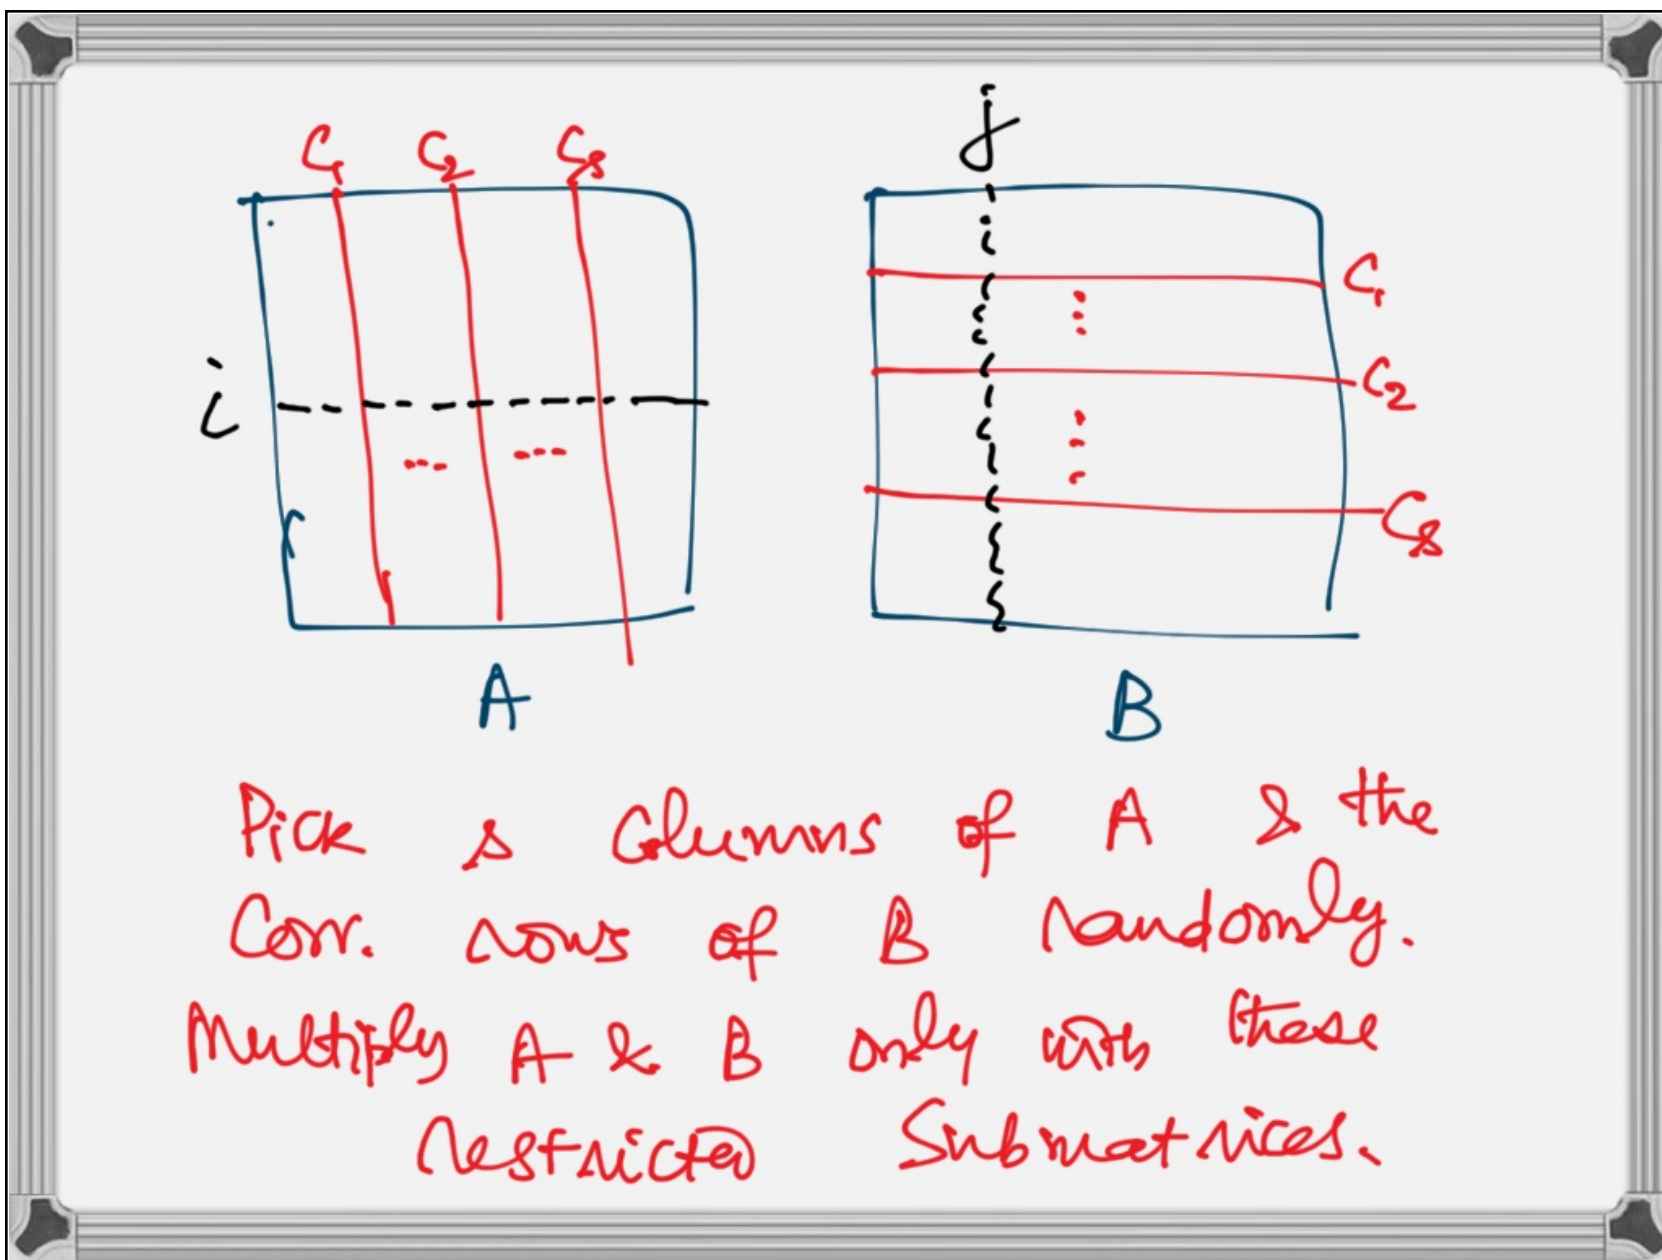 C1 C2 Cs
j
i
C1
C2
Cs
A B
Pick s Columns of A & the
Corr. rows of B randomly.
Multiply A & B only with these
restricted Submatrices.